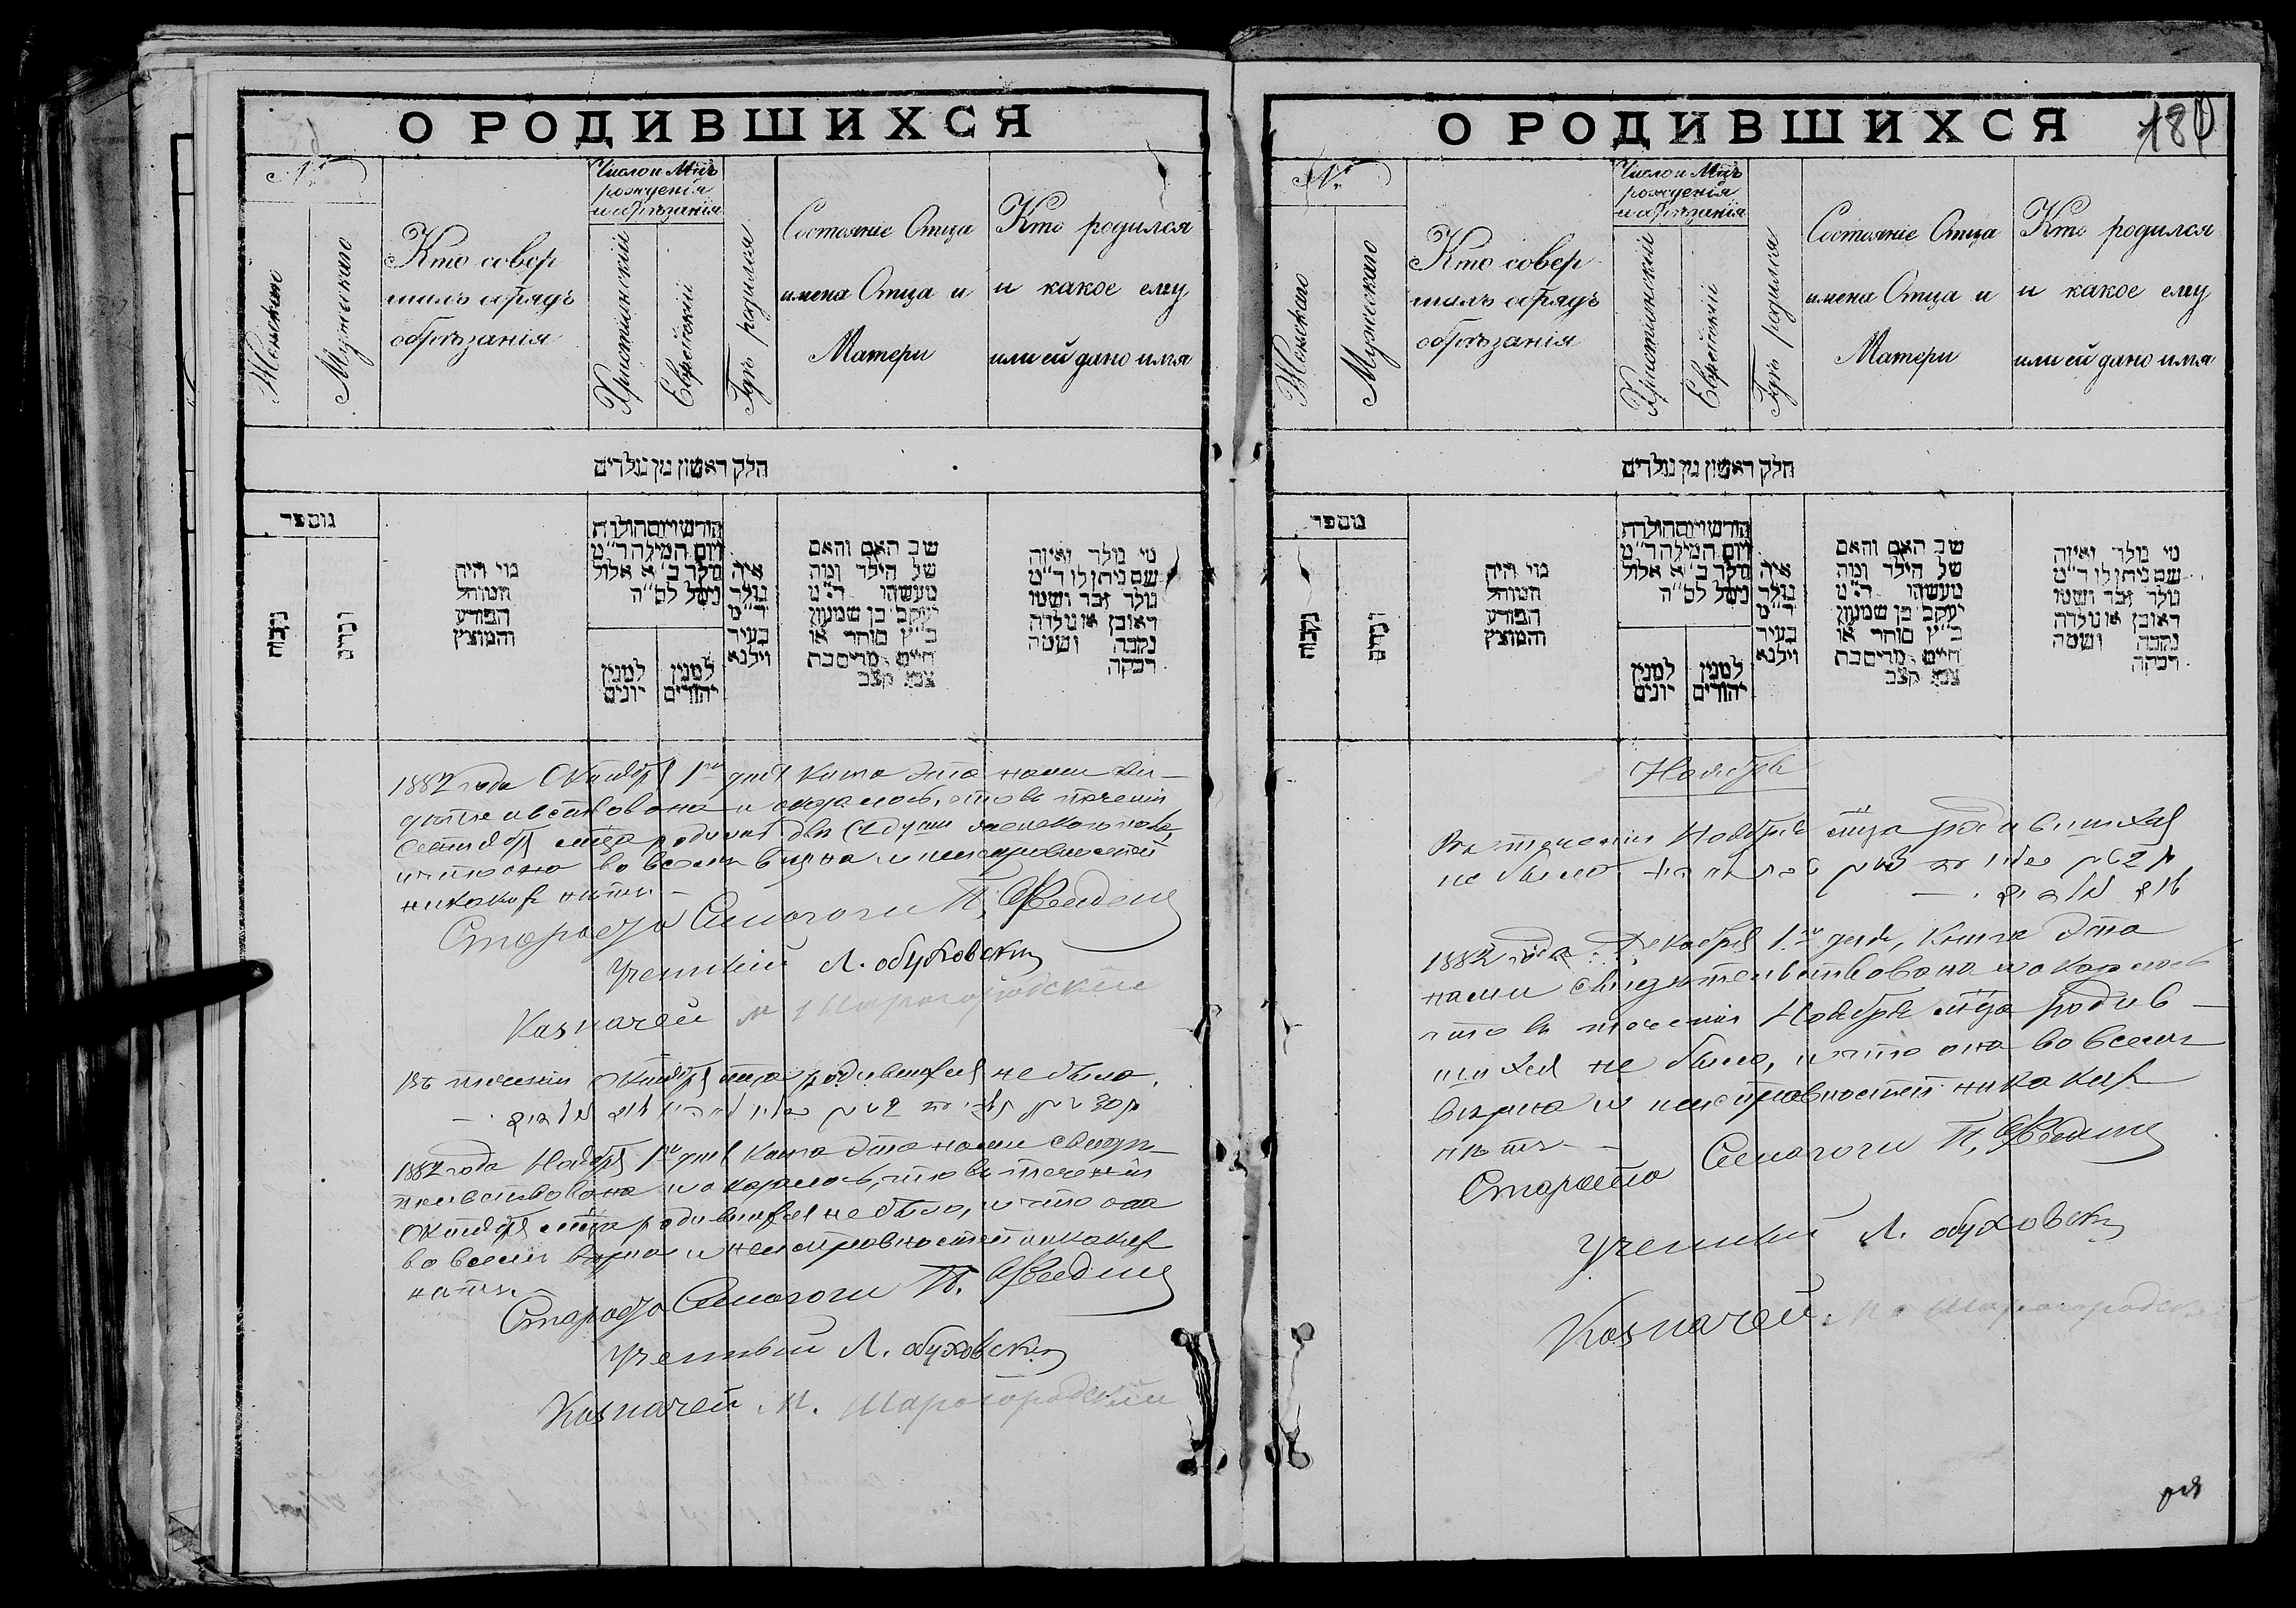 О РОДИВШИХСЯ
№
Женскаго
Мужскаго
Кто совер
шилъ обрядъ
обрѣзанія
Число и Мц҃ъ
рожденія
и обрѣзанія
Христіянскій
Еврейскій
Гдѣ родился
Состояніе Отца
имена Отца и
Матери
Кто родился
и какое ему
или ей дано имя
חלק ראשון מן נולדים
מספר
מי היה
המוהל
הפורע
והמוצץ
ויום המילה ד״מ
נולד ב׳ א אלול
נימל לס״ה
למנין
יונים
למנין
יהודים
איה
נולד
ד״מ
בעיר
וילנא
שם האם והאם
של הילד ומה
מעשהו ד״מ
יעקב בן שמעון
כ״ץ סוחר או
חיים מריסבת
צבי קצב
מי נולד ואיזה
שם ניתן לו ד״מ
נולד זכר ושמו
ראובן או נולדה
נקבה ושמה
רבקה
1882 года Октября 1го дня книга эта нами сви-
дѣтельствована и оказалось, что въ теченіи
Сентября мц҃а родилось двѣ (2 души женскаго пола,
и что она во всемъ вѣрна и неисправностей
никакихъ нѣтъ.-
Староста Синагоги
Ученый Л. Обуховскій
Казначей М Шарогородскій
Въ теченіи Октября мц҃а родившихся не было.
1882 года Ноября 1го дня Книга эта нами свидѣ-
тельствована и оказалось, что въ теченіи
Октября мц҃а родившихся не было, и что она
во всемъ вѣрна и неисправностей никакихъ
нѣтъ.
Староста Синагоги
Ученый Л. Обуховскій
Казначей М. Шарогородскій
О РОДИВШИХСЯ
№
Женскаго
Мужскаго
Кто совер
шилъ обрядъ
обрѣзанія
Число и Мц҃ъ
рожденія
и обрѣзанія
Христіянскій
Еврейскій
Гдѣ родился
Состояніе Отца
имена Отца и
Матери
Кто родился
и какое ему
или ей дано имя
חלק ראשון מן נולדים
מספר
מי היה
המוהל
הפורע
והמוצץ
ויום המילה ד״מ
נולד ב׳ א אלול
נימל לס״ה
למנין
יונים
למנין
יהודים
איה
נולד
ד״מ
בעיר
וילנא
שם האם והאם
של הילד ומה
מעשהו ד״מ
יעקב בן שמעון
כ״ץ סוחר או
חיים מריסבת
צבי קצב
מי נולד ואיזה
שם ניתן לו ד״מ
נולד זכר ושמו
ראובן או נולדה
נקבה ושמה
רבקה
Ноябрь
Въ теченіи Ноября мц҃а родившихся
не было
1882 года Декабря 1го дня, Книга эта
нами свидѣтельствована и оказалось
что въ теченіи Ноября мц҃а родив-
шихся не было, и что она во всемъ
вѣрна и неисправностей никакихъ
нѣтъ-
Староста Синагоги
Ученый Л. Обуховскій
Казначей М Шарогородскій